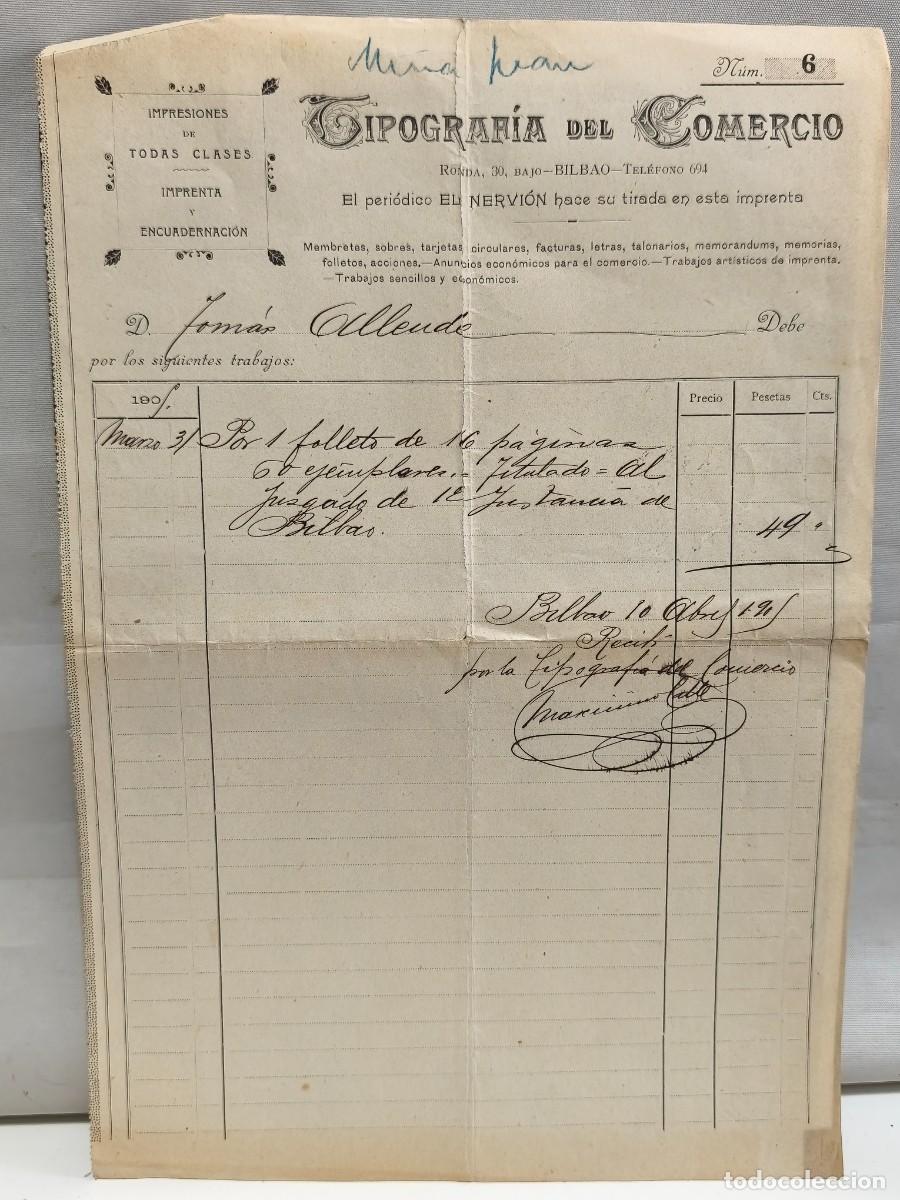 Mina Juan
Núm. 6
IMPRESIONES
DE
TODAS CLASES
IMPRENTA
Y
ENCUADERNACIÓN
TIPOGRAFÍA DEL COMERCIO
RONDA, 30, BAJO—BILBAO—TELÉFONO 694
El periódico EL NERVIÓN hace su tirada en esta imprenta
Membretes, sobres, tarjetas, circulares, facturas, letras, talonarios, memorandums, memorias,
folletos, acciones.—Anuncios económicos para el comercio.—Trabajos artísticos de imprenta.
—Trabajos sencillos y económicos.
D. Tomás Allende Debe
por los siguientes trabajos:
1905. Precio Pesetas Cts.
Marzo 31 Por 1 folleto de 16 páginas
60 ejemplares.= Titulado = Al
Juzgado de 1ª Instancia de
Bilbao. 49 "
Bilbao 10 Abril 1905
Recibí
por la Tipografía del Comercio
Maximino
todocoleccion